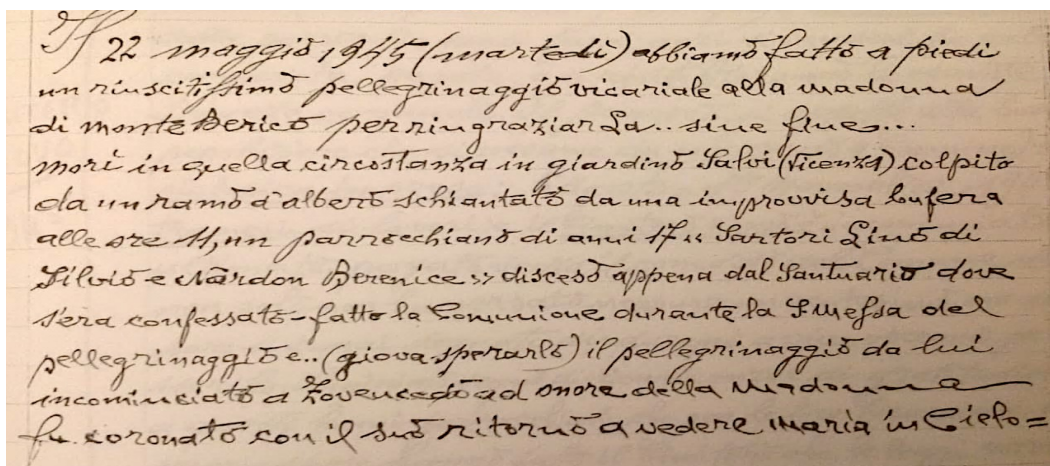 Il 22 maggio 1945 (martedì) abbiamo fatto a piedi
un riuscitissimo pellegrinaggio vicariale alla madonna
di monte Berico per ringraziarLa.. sine fine...
morì in quella circostanza in giardino Salvi (Vicenza) colpito
da un ramo d'albero schiantato da una improvvisa bufera
alle ore 11, un parrocchiano di anni 17 « Sartori Lino di
Silvio e Nardon Berenice » disceso appena dal Santuario dove
s'era confessato - fatto la Comunione durante la S. messa del
pellegrinaggio e.. (giova sperarlo) il pellegrinaggio da lui
incominciato a Zovencedo ad onore della Madonna
fu coronato con il suo ritorno a vedere Maria in Cielo =